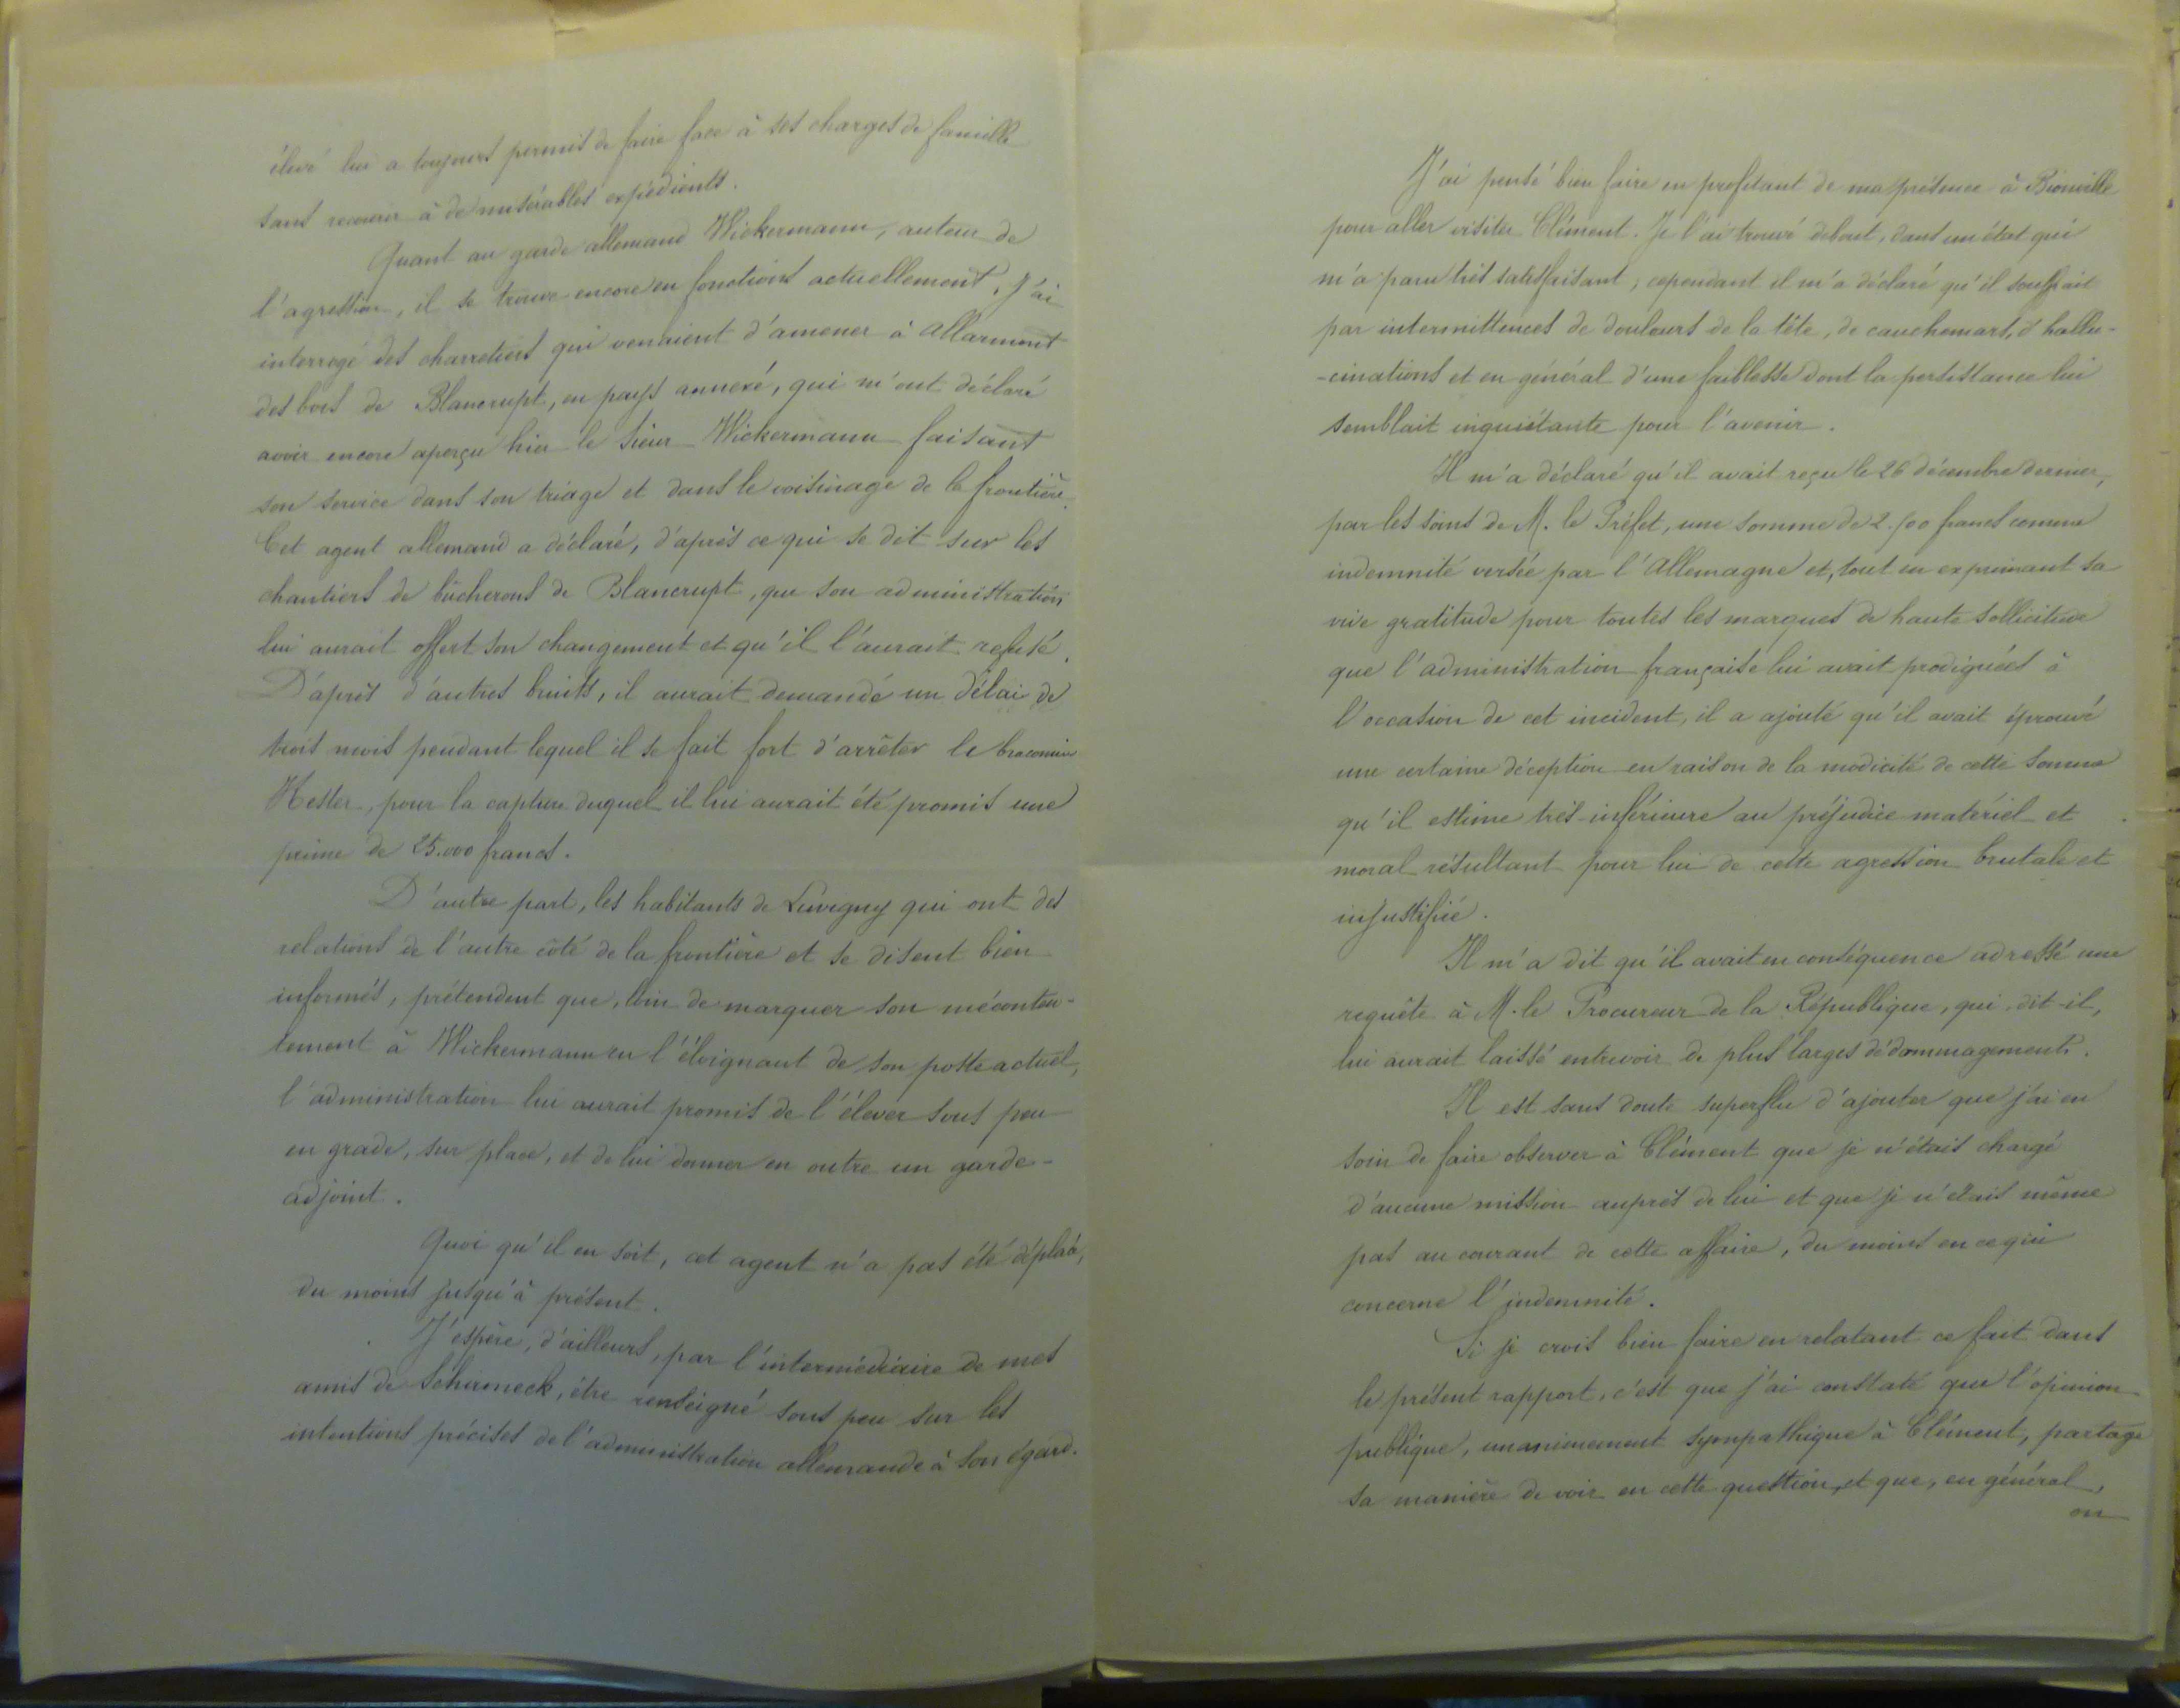 élevé lui a toujours permis de faire face à ses charges de famille
sans recourir à de misérables expédients.
Quant au garde allemand Wickermann, auteur de
l'agression, il se trouve encore en fonctions actuellement. J'ai
interrogé des charretiers qui venaient d'amener à Allarmont
des bois de Blancrupt, en pays annexé, qui m'ont déclaré
avoir encore aperçu hier le sieur Wickermann faisant
son service dans son triage et dans le voisinage de la frontière.
Cet agent allemand a déclaré, d'après ce qui se dit sur les
chantiers de bûcherons de Blancrupt, que son administration
lui aurait offert son changement et qu'il l'aurait refusé.
D'après d'autres bruits, il aurait demandé un délai de
trois mois pendant lequel il se fait fort d'arrêter le braconnier
Kester, pour la capture duquel il lui aurait été promis une
prime de 25.000 francs.
D'autre part, les habitants de Luvigny qui ont des
relations de l'autre côté de la frontière et se disent bien
informés, prétendent que, loin de marquer son méconten-
tement à Wickermann en l'éloignant de son poste actuel,
l'administration lui aurait promis de l'élever sous peu
en grade, sur place, et de lui donner en outre un garde-
adjoint.
Quoi qu'il en soit, cet agent n'a pas été déplacé,
du moins jusqu'à présent.
J'espère, d'ailleurs, par l'intermédiaire de mes
amis de Schirmeck, être renseigné sous peu sur les
intentions précises de l'administration allemande à son égard.
J'ai pensé bien faire en profitant de ma présence à Bionville
pour aller visiter Clément. Je l'ai trouvé debout, dans un état qui
m'a paru très satisfaisant ; cependant il m'a déclaré qu'il souffrait
par intermittences de douleurs de la tête, de cauchemars, d'hallu-
-cinations et en général d'une faiblesse dont la persistance lui
semblait inquiétante pour l'avenir.
Il m'a déclaré qu'il avait reçu le 26 décembre dernier,
par les soins de M. le Préfet, une somme de 2.500 francs comme
indemnité versée par l'Allemagne et, tout en exprimant sa
vive gratitude pour toutes les marques de haute sollicitude
que l'administration française lui avait prodiguées à
l'occasion de cet incident, il a ajouté qu'il avait éprouvé
une certaine déception en raison de la modicité de cette somme
qu'il estime très-inférieure au préjudice matériel et
moral résultant pour lui de cette agression brutale et
injustifiée.
Il m'a dit qu'il avait en conséquence adressé une
requête à M. le Procureur de la République, qui, dit-il,
lui aurait laissé entrevoir de plus larges dédommagements.
Il est sans doute superflu d'ajouter que j'ai eu
soin de faire observer à Clément que je n'étais chargé
d'aucune mission auprès de lui et que je n'étais même
pas au courant de cette affaire, du moins en ce qui
concerne l'indemnité.
Si je crois bien faire en relatant ce fait dans
le présent rapport, c'est que j'ai constaté que l'opinion
publique, unanimement sympathique à Clément, partage
sa manière de voir en cette question, et que, en général,
on